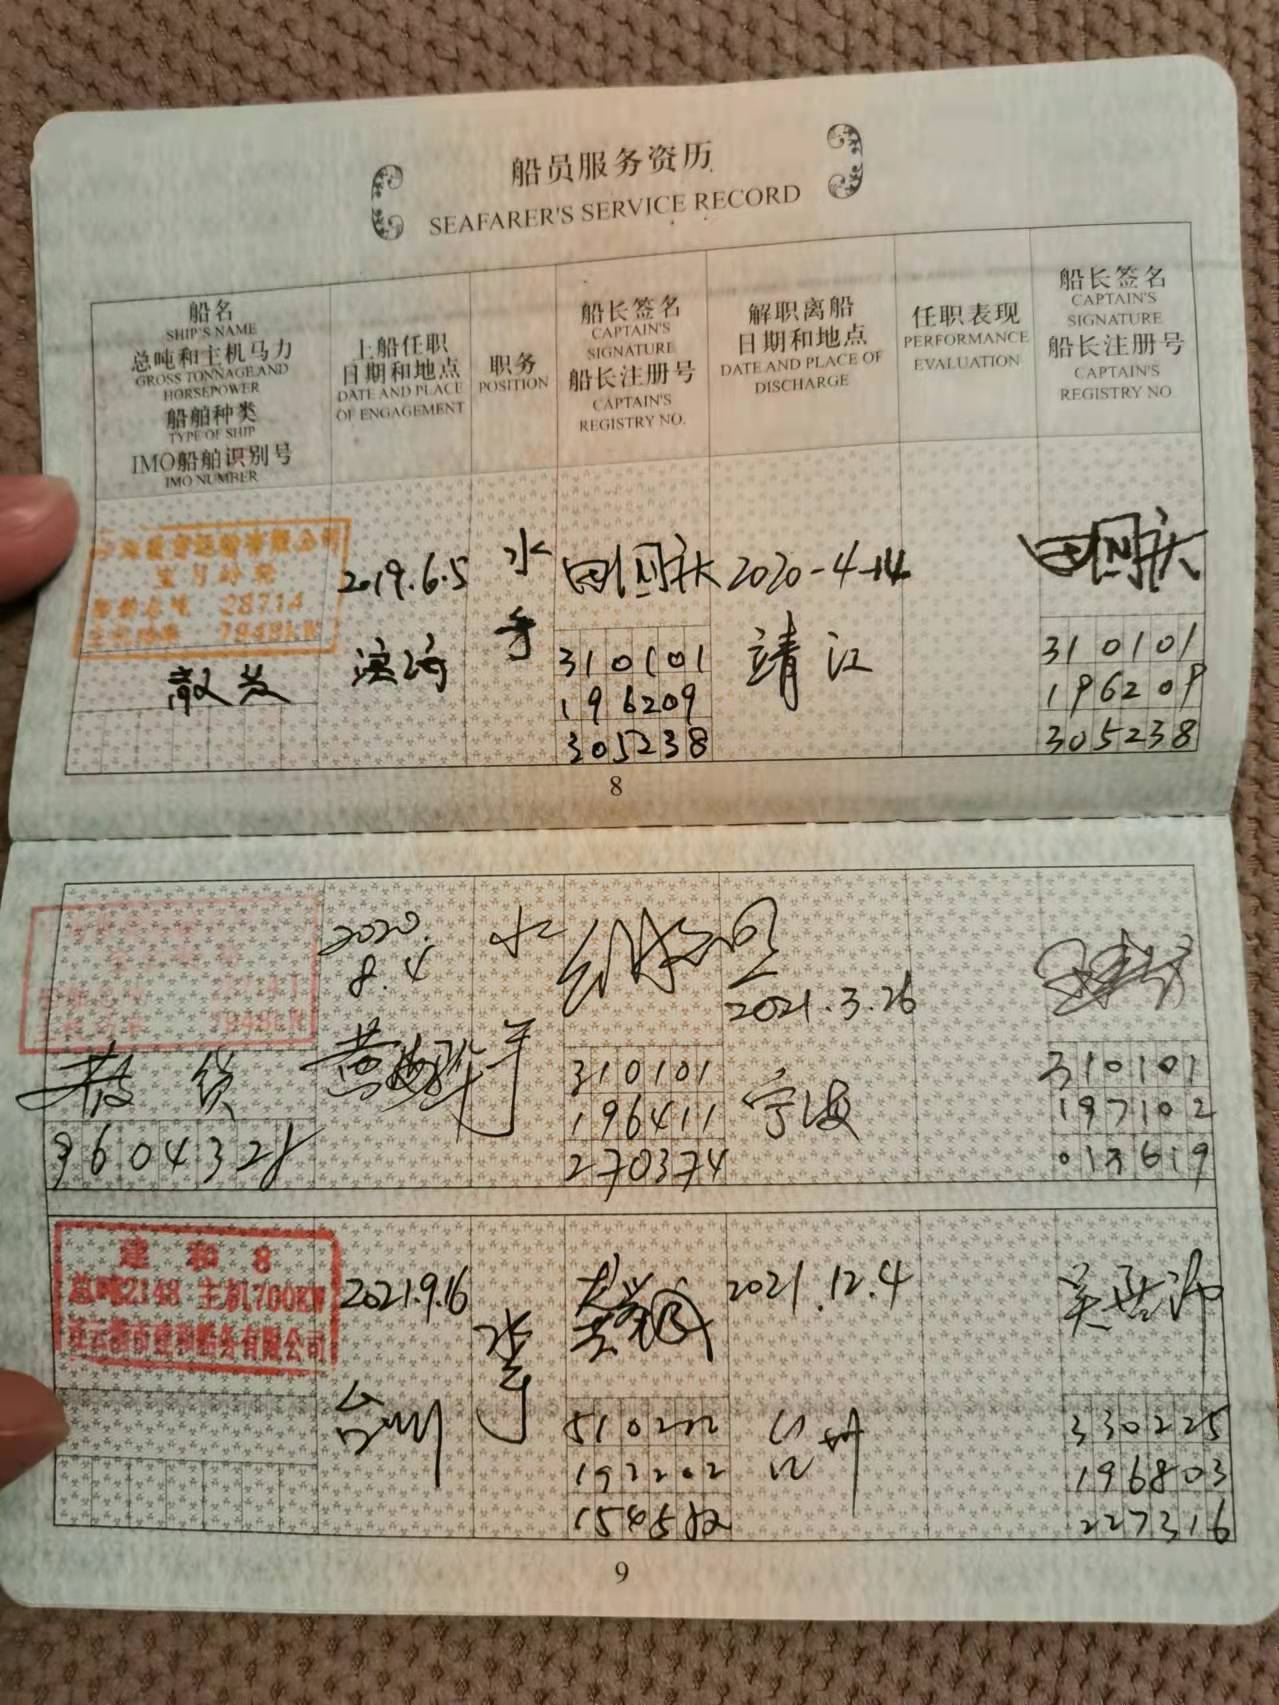 船员服务资历
SEAFARER'S SERVICE RECORD
船名
SHIP'S NAME
总吨和主机马力
GROSS TONNAGE AND
HORSEPOWER
船舶种类
TYPE OF SHIP
IMO船舶识别号
IMO NUMBER
上船任职
日期和地点
DATE AND PLACE
OF ENGAGEMENT
职务
POSITION
船长签名
CAPTAIN'S
SIGNATURE
船长注册号
CAPTAIN'S
REGISTRY NO.
解职离船
日期和地点
DATE AND PLACE OF
DISCHARGE
任职表现
PERFORMANCE
EVALUATION
船长签名
CAPTAIN'S
SIGNATURE
船长注册号
CAPTAIN'S
REGISTRY NO
28714
7948kW
散货
2019.6.5
水
手
田国庆
310101
196209
305238
2020-4-14
靖江
田国庆
310101
196209
305238
8
7948kW
散货
9604328
2020.
8.4
黄骅
水
手
310101
196411
270374
2021.3.26
宁海
310101
197102
9
建和8
总吨2148 主机700KW
连云港市建和船务有限公司
2021.9.16
台州
水手
2021.12.4
台州
330225
196803
227316